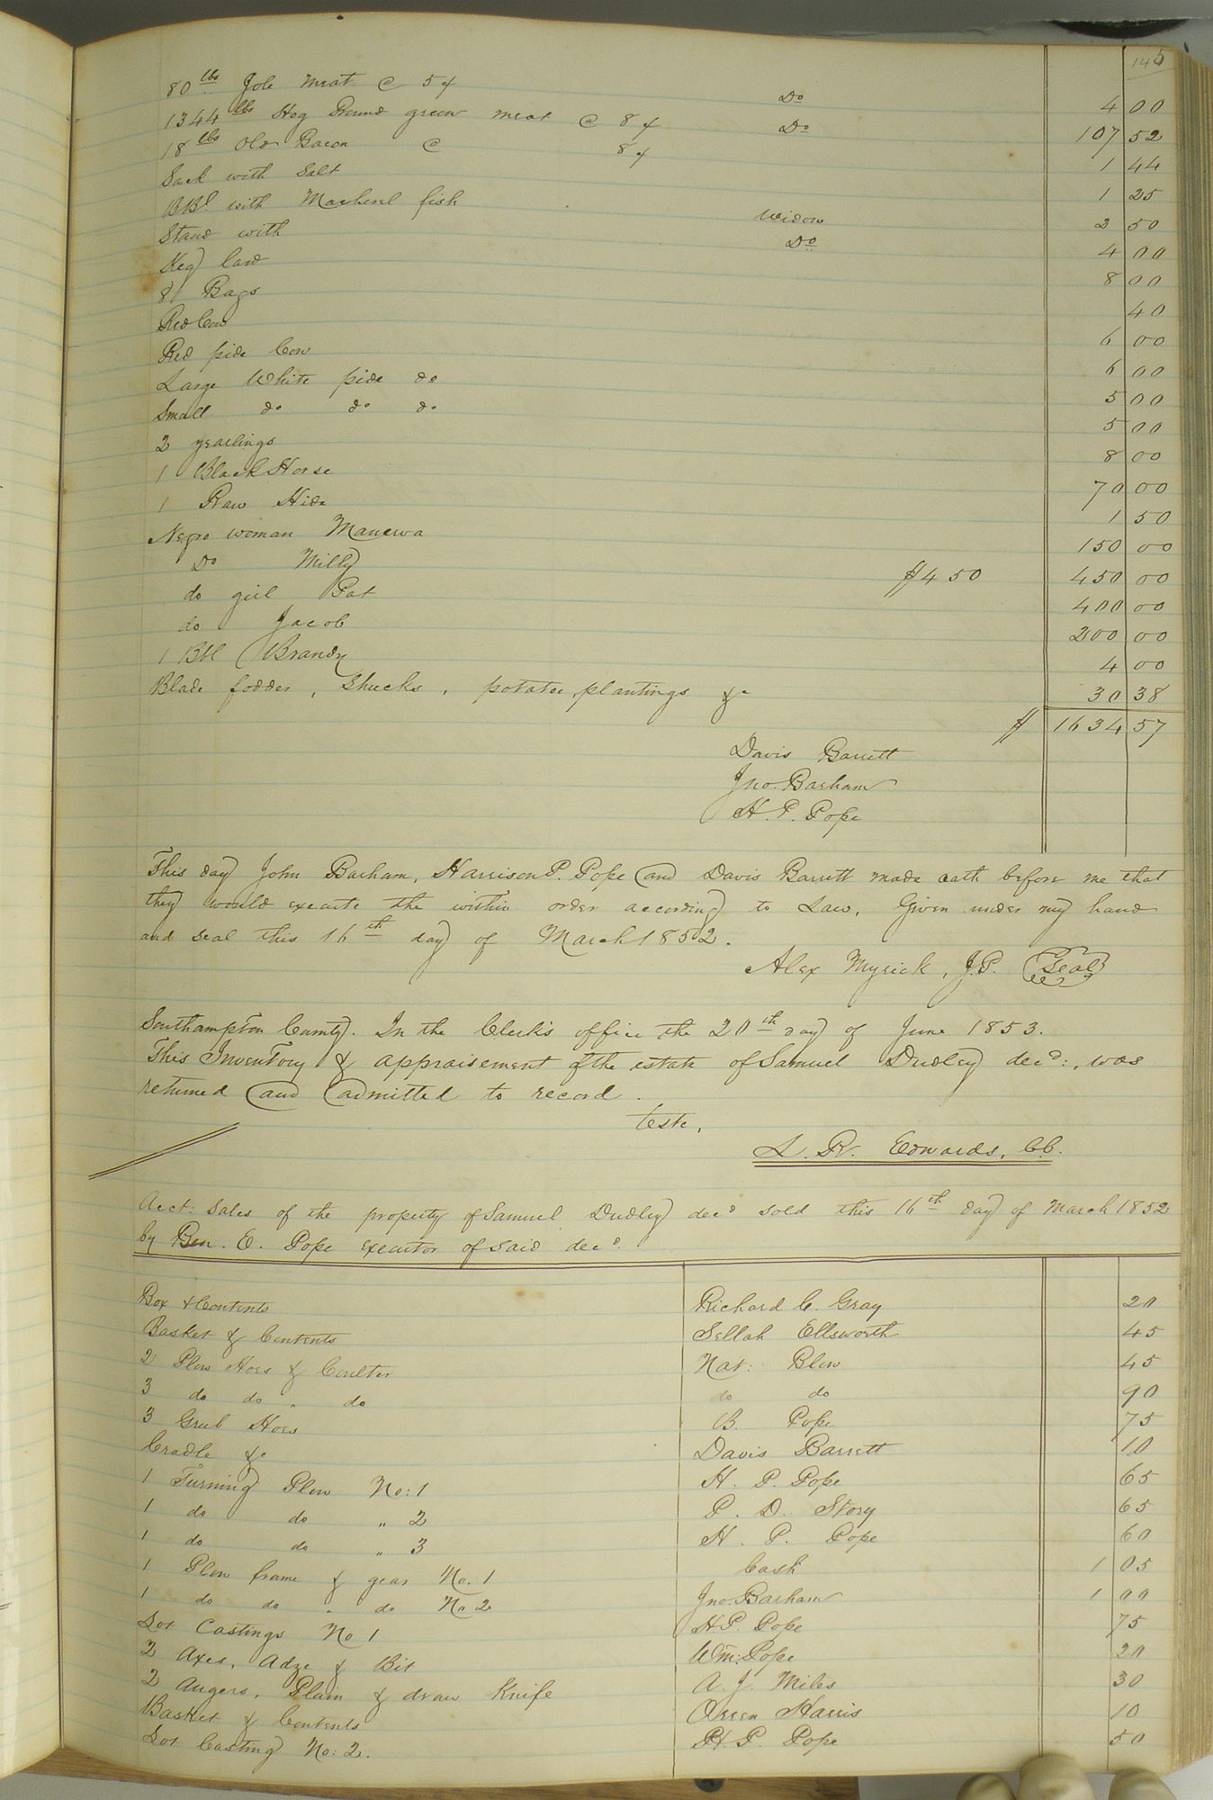 145
80 lbs Jole Meat @ 5 ¢ Do 4 00
1344 lbs Hog Round green meat @ 8 ¢ Do 107 52
18 lbs Old Bacon @ 8 ¢ 1 44
Sack with Salt 1 25
BBl with Mackerel fish Widow 2 50
Stand with Do 4 00
Keg Lard 8 00
8 Bags 40
Red Cow 6 00
Red pide Cow 6 00
Large White pide do 5 00
Small do do do 5 00
2 yearlings 8 00
1 Black Horse 70 00
1 Raw Hide 1 50
Negro woman Manerva 150 00
Do Milly $450 450 00
do girl Pat 400 00
do Jacob 200 00
1 Bbl Brandy 4 00
Blade fodder, Shucks, potatoe, plantings &c 30 38
$ 1634 57
Davis Barrett
Jno. Barham
H. P. Pope
This day John Barham, Harrison P. Pope and Davis Barrett made oath before me that
they would execute the within order according to Law. Given under my hand
and seal this 16th day of March 1852.
Alex Myrick, J.P. Seal
Southampton County. In the Clerk's office the 20th day of June 1853.
This Inventory & appraisement of the estate of Samuel Dudley decd:, was
returned and admitted to record.
Teste,
L. R. Edwards, C.C.
Acct: Sales of the property of Samuel Dudley decd sold this 16th day of March 1852
by Ben. E. Pope executor of said decd.
Box & Contents Richard C. Gray 20
Basket & Contents Sellah Ellsworth 45
2 Plow Hoes & Coulter Nat: Blow 45
3 do do " do do do 90
3 Grub Hoes B. Pope 75
Cradle &c Davis Barrett 10
1 Turning Plow No: 1 H. P. Pope 65
1 do do " 2 P. D. Story 65
1 do do " 3 H. P. Pope 60
1 Plow frame & gear No. 1 Cash 1 05
1 do do " do No 2 Jno. Barham 1 00
Lot Castings No 1 H P. Pope 75
2 Axes, Adze & Bit Wm: Pope 20
2 Augers, Plain & draw Knife A. J. Miles 30
Basket & Contents Orren Harris 10
Lot Casting No: 2. H. P. Pope 50